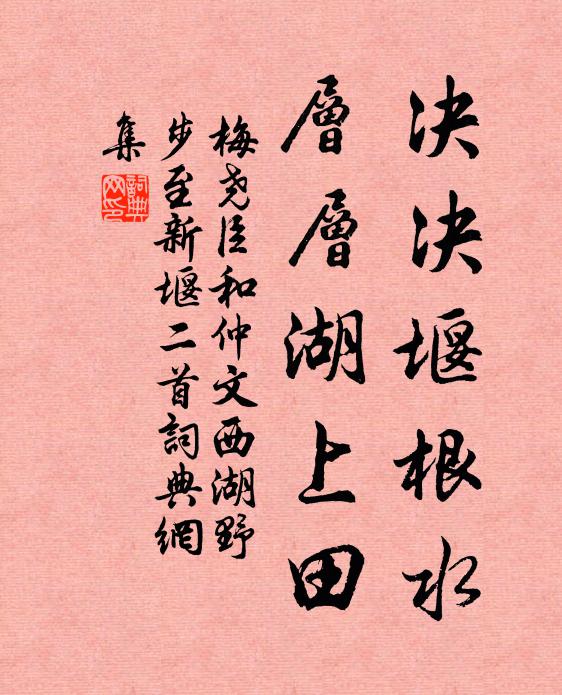 决决堰根水
層層湖上田
梅尧臣和仲文西湖野
步至新堰二首詞典網
集
詞典
网印